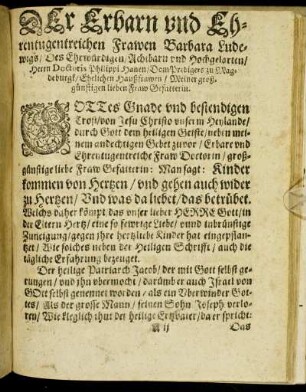 DEr Erbarn vnd Eh-
rentugentreichen Frawen Barbara Lude-
wigs / Des Ehrwürdigen / Achtbarn vnd Hochgelarten /
Herrn Doctoris Philippi Hanen / Dom Predigers zu Mag-
deburgk / Ehelichen Haußfrawen / Meiner groß-
günstigen lieben Fraw Gefatterin.
GOTTes Gnade vnd bestendigen
Trost / von Jesu Christo vnserm Heylande /
durch Gott dem heiligen Geiste / neben mei-
nem andechtigen Gebet zuvor / Erbare vnd
Ehrentugentreiche Fraw Doctorin / groß-
günstige liebe Fraw Gefatterin: Man sagt: Kinder
kommen von Hertzen / vnd gehen auch wider
zu Hertzen / Vnd was da liebet / das betrübet.
Welchs daher kömpt das vnser lieber HERRE Gott / in
der Eltern Hertz / eine so fewrige Liebe / vnnd inbrünstige
Zuneigung / gegen ihre hertzliebe Kinder hat eingepflan-
tzet / Wie solches neben der Heiligen Schrifft / auch die
tägliche Erfahrung bezeuget.
Der heilige Patriarch Jacob / der mit Gott selbst ge-
rungen / vnd ihn vbermocht / darumb er auch Israel von
GOtt selbst genennet worden / als ein Vberwinder Got-
tes / Als der grosse Mann / seinen Sohn Joseph verlo-
ren / Wie kleglich thut der heilige Ertzvater / da er spricht:
A ij Das